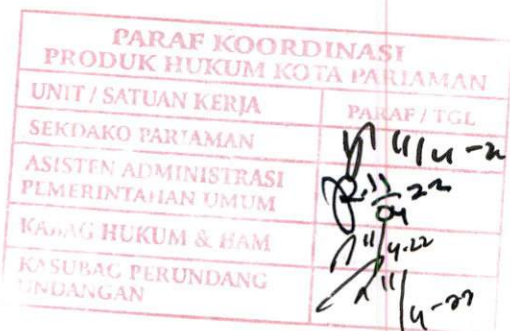 PARAF KOORDINASI
PRODUK HUKUM KOTA PARIAMAN
UNIT / SATUAN KERJA PARAF / TGL
SEKDAKO PARIAMAN 11/4-22
ASISTEN ADMINISTRASI
PEMERINTAHAN UMUM 11/04 22
KABAG HUKUM & HAM 11/4-22
KASUBAG PERUNDANG
UNDANGAN 11/4-22